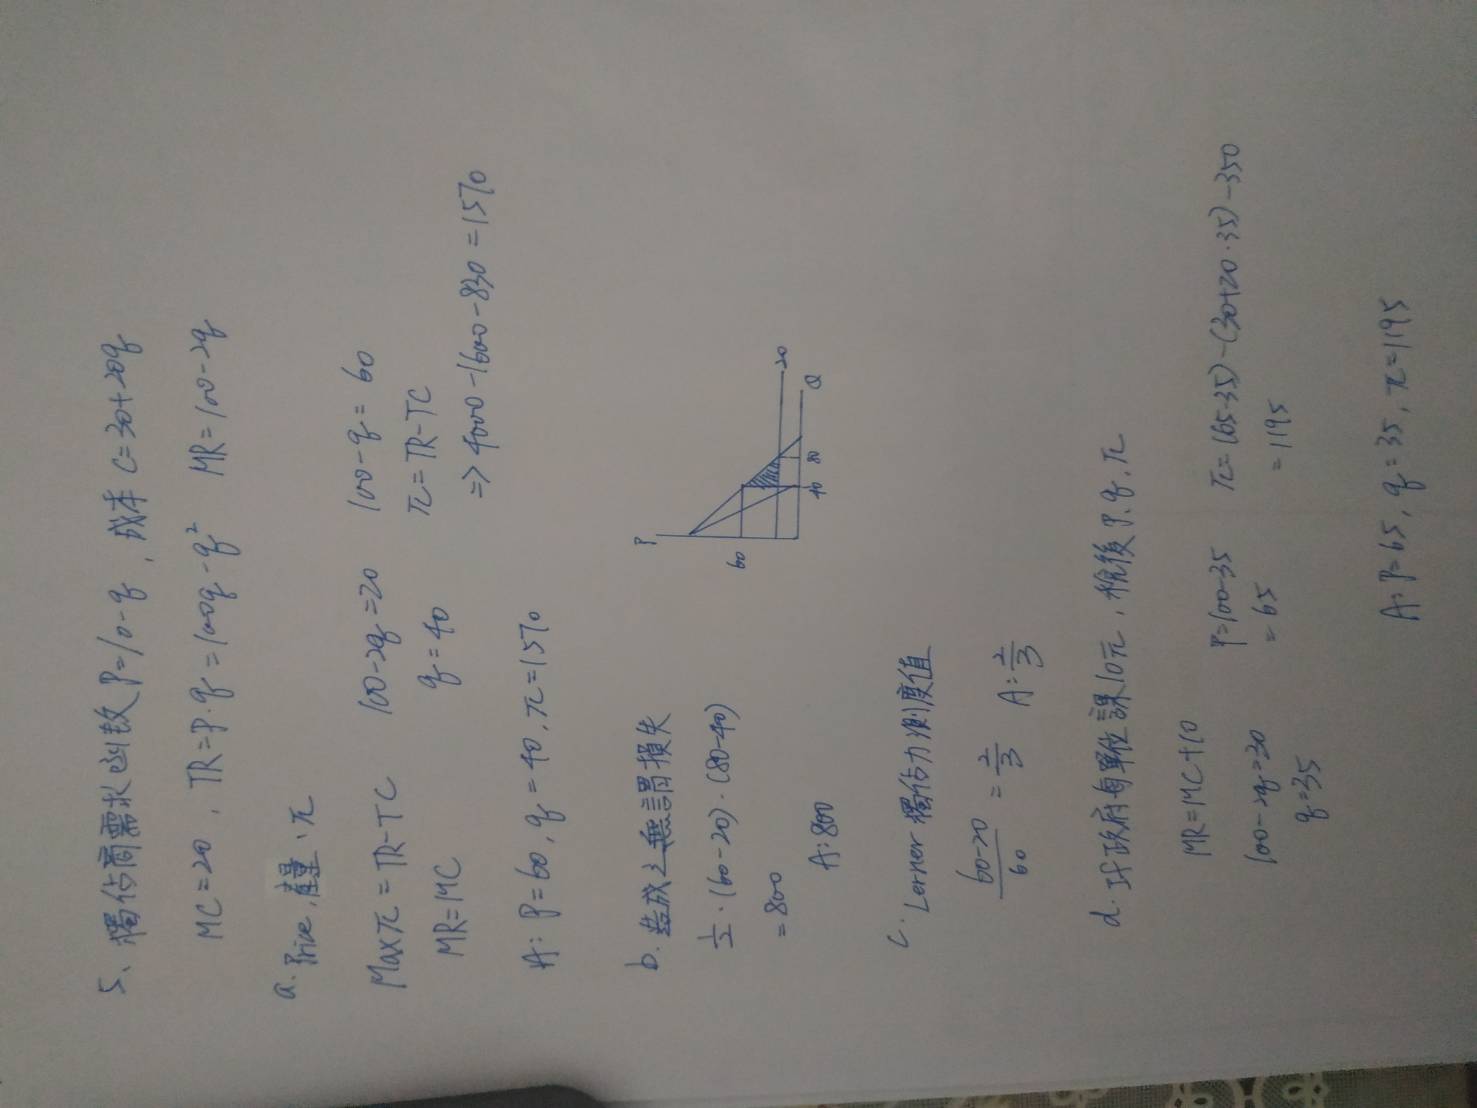 5、獨佔商需求函數 P=10-q , 成本 C=30+20q
MC=20 , TR=P·q=100q-q² MR=100-2q
a. Price, 產量, π
Maxπ=TR-TC 100-2q=20 100-q=60
MR=MC q=40 π=TR-TC
=> 4000-1600-830=1570
A: P=60, q=40, π=1570
b. 造成之無謂損失
½·(60-20)·(80-40)
=800
A:800
P
60
40 80 Q
20
c. Lerner 獨佔力測度值
60-20/60 = 2/3 A:2/3
d. 工F政府每單位課10元, 稅後 P.q.π
MR=MC+10 P=100-35 π=(65·35)-(30+20·35)-350
100-2q=30 =65 =1195
q=35
A: P=65, q=35, π=1195